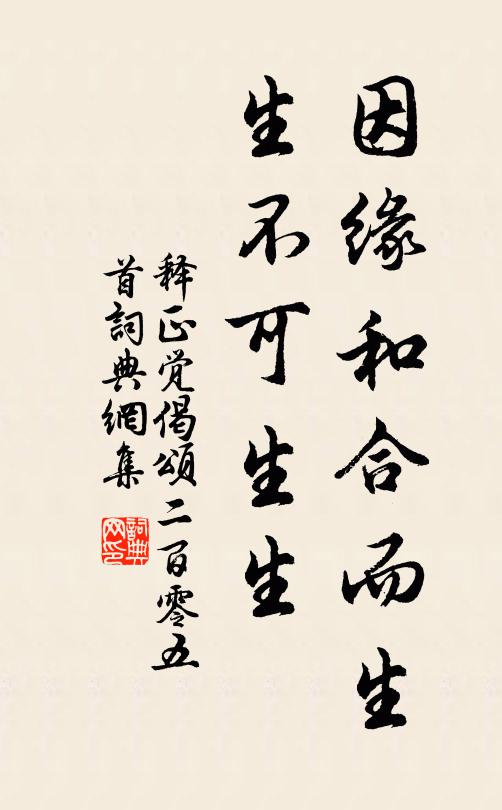 因缘和合而生
生不可生生
释正觉偈颂二百零五
首詞典網集
詞典
网印